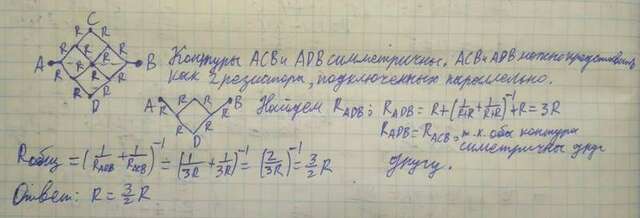 C
R R
R R
R R
A B
R R
R R
R R
D
Контуры ACB и ADB симметричны. ACB и ADB можно представить
как 2 резистора, подключенных параллельно.
A B
R R R R
R R
D
Найдем R_ADB; R_ADB = R + (1/(R+R) + 1/(R+R))^-1 + R = 3R
R_ADB = R_ACB, т.к. обы контура
симетричны друг
другу.
R_общ = (1/R_ADB + 1/R_ACB)^-1 = (1/3R + 1/3R)^-1 = (2/3R)^-1 = 3/2 R
Ответ: R = 3/2 R